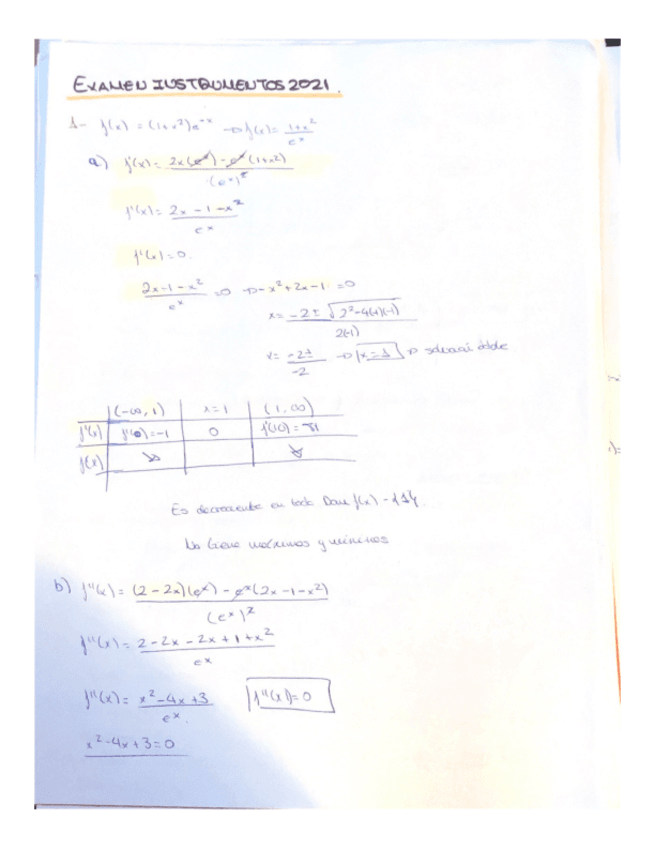 EXAMEN INSTRUMENTOS 2021.
1- f(x) = (1+x²)e^-x → f(x) = (1+x²)/e^x
a) f'(x) = (2x(e^x) - e^x(1+x²))/(e^x)²
f'(x) = (2x - 1 - x²)/e^x
f'(x) = 0.
(2x - 1 - x²)/e^x = 0 → -x² + 2x - 1 = 0
x = (-2 ± √(2² - 4(-1)(-1)))/2(-1)
x = -2±/-2 → x = 1 → doble
(-∞, 1) x = 1 (1, ∞)
f'(x) f'(0) = -1 0 f'(10) = -81
f(x) ↘ ↘
Es decreciente en todo Dom f(x) - {1}.
No tiene máximos y mínimos
b) f''(x) = ((2 - 2x)(e^x) - e^x(2x - 1 - x²))/(e^x)²
f''(x) = (2 - 2x - 2x + 1 + x²)/e^x
f''(x) = (x² - 4x + 3)/e^x. f''(x) = 0
x² - 4x + 3 = 0